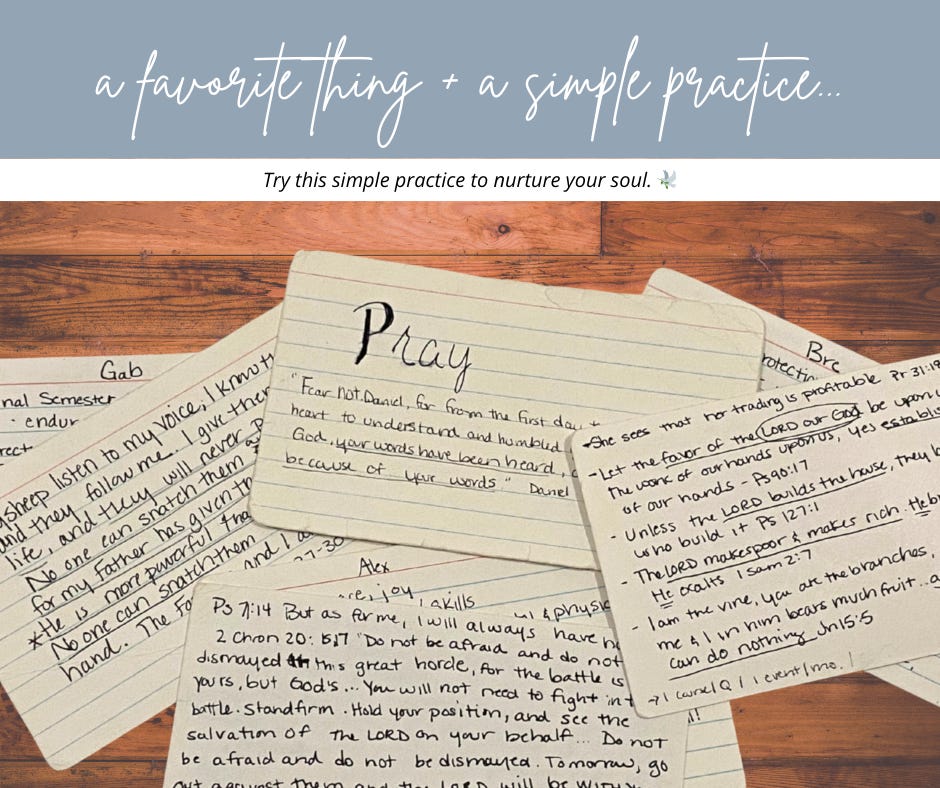 a favorite thing + a simple practice...
Try this simple practice to nurture your soul. 🕊️
Pray
"Fear not, Daniel, for from the first day
heart to understand and humbled
God, your words have been heard,
because of your words" Daniel
Gab
nal Semester
· endur
sheep listen to my voice, I know
and they follow me... I give the
life, and they will never p
No one can snatch them
for my Father has given th
*He is more powerful tha
No one can snatch them
hand. The Fa and I a
27-30
Bre
rotectin
-She sees that her trading is profitable Pr 31:18
-Let the favor of the LORD our God be upon u
the work of our hands upon us, yes establis
of our hands - Ps 90:17
- Unless the LORD builds the house, they l
who build it Ps 127:1
- The LORD makes poor & makes rich. He b
He exalts 1 Sam 2:7
- I am the vine, you are the branches,
me & I in him bears much fruit.. a
can do nothing Jn 15:5
event/mo.!
Alex
joy, skills
& physic
Ps 71:14 But as for me, I will always have h
2 Chron 20: 15,17 "Do not be afraid and do not
dismayed this great horde, for the battle is
yours, but God's... You will not need to fight in t
battle. Stand firm. Hold your position, and see the
salvation of the LORD on your behalf... Do not
be afraid and do not be dismayed. Tomorrow, go
out against them and the LORD will be with